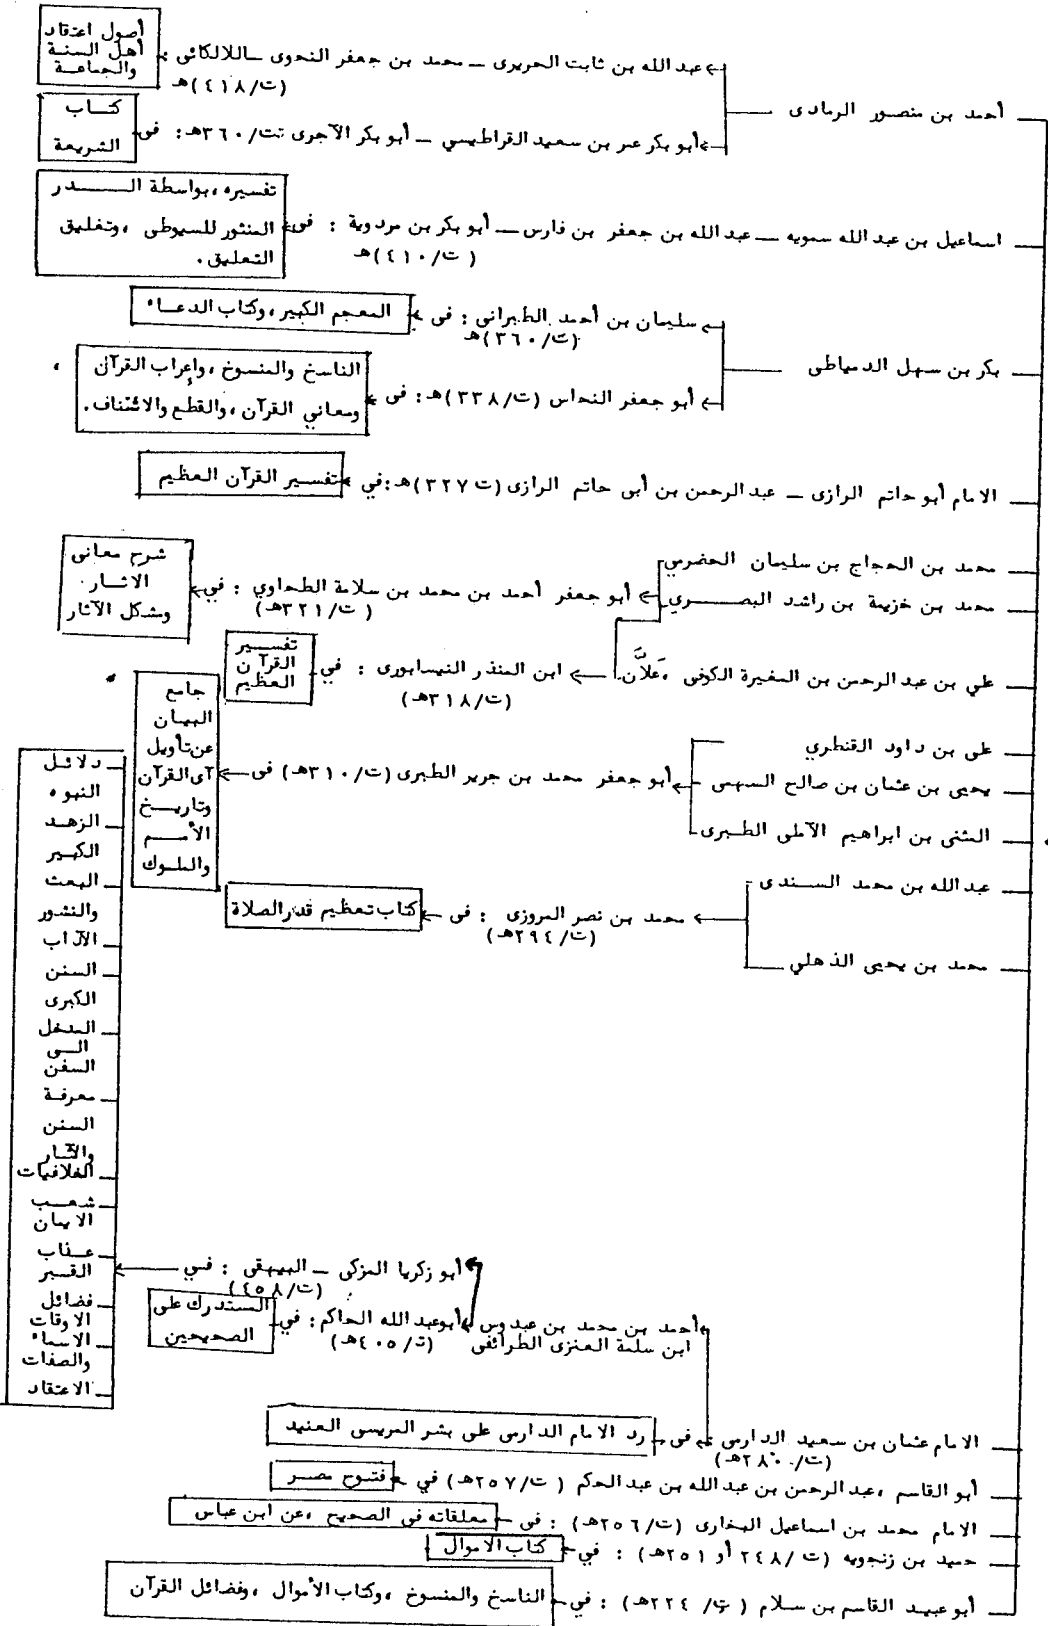 أحمد بن منصور الرمادى
عبد الله بن ثابت الحريرى ــ محمد بن جعفر النحوى ــ اللالكائى :
(ت/٤١٨)هـ
أصول اعتقاد
أهل السنة
والجماعة
أبو بكر عمر بن سعيد القراطيسي ــ أبو بكر الآجرى ت/٣٦٠هـ: فى
كتاب
الشريعة
اسماعيل بن عبد الله سمويه ــ عبد الله بن جعفر بن فارس ــ أبو بكر بن مردوية : فى
(ت/٤١٠)هـ
تفسيره ،بواسطة الــدر
المنثور للسيوطى ،وتغليق
التعليق.
بكر بن سهل الدمياطى
سليمان بن أحمد الطبرانى : فى
(ت/٣٦٠)هـ
المعجم الكبير ،وكتاب الدعاء
أبو جعفر النحاس (ت/٣٣٨)هـ: فى
الناسخ والمنسوخ ،وإعراب القرآن
ومعاني القرآن ،والقطع والائتناف.
الامام أبو حاتم الرازى ــ عبد الرحمن بن أبى حاتم الرازى (ت ٣٢٧)هـ:في
تفسير القرآن العظيم
محمد بن الحجاج بن سليمان الحضرمي
محمد بن خزيمة بن راشد البصـرى
أبو جعفر أحمد بن محمد بن سلامة الطحاوي : في
(ت/٣٢١هـ)
شرح معانى
الاثـار
ومشكل الآثار
علي بن عبد الرحمن بن المغيرة الكوفى ،عَلاَّن
ابن المنذر النيسابورى : في
(ت/٣١٨هـ)
تفسـير
القرآن
العظيم
على بن داود القنطري
يحيى بن عثمان بن صالح السهمى
المثنى بن ابراهيم الآملى الطبرى
أبو جعفر محمد بن جرير الطبرى (ت/٣١٠هـ) فى
جامع
البيان
عن تأويل
آى القرآن
وتاريـخ
الأمــم
والملوك
عبد الله بن محمد السـندى
محمد بن يحيى الذهلي
محمد بن نصر المروزى : فى
(ت/٢٩٤هـ)
كتاب تعظيم قدر الصلاة
أبو زكريا المزكى ــ البيهقى : فـي
(ت/٤٥٨)
دلائـل
النبوه
الزهـد
الكبير
البعث
والنشور
الآداب
السنن
الكبرى
المدخل
الـى
السنن
معرفـة
السنن
والآثـار
الخلافيات
شعـب
الايمان
عـذاب
القـبر
فضائل
الاوقات
الاسماء
والصفات
الاعتقاد
أحمد بن محمد بن عبدوس
ابن سلمة العنزى الطرائفى
أبوعبد الله الحاكم: في
(ت/٤٠٥هـ)
المستدرك على
الصحيحين
الامام عثمان بن سعيد الدارمى فى
(ت/٢٨٠هـ)
رد الامام الدارمى على بشر المريسى العنيد
أبو القاسم ،عبد الرحمن بن عبد الله بن عبد الحكم (ت/٢٥٧هـ) في
فتـوح مصـر
الامام محمد بن اسماعيل البخارى (ت/٢٥٦هـ) : فى
معلقاته فى الصحيح ،عن ابن عباس
حميد بن زنجويه (ت/٢٤٨ أو ٢٥١هـ) : في
كتاب الاموال
أبو عبيد القاسم بن سـلام (ت/ ٢٢٤هـ) : في
الناسخ والمنسوخ ،وكتاب الأموال ،وفضائل القرآن